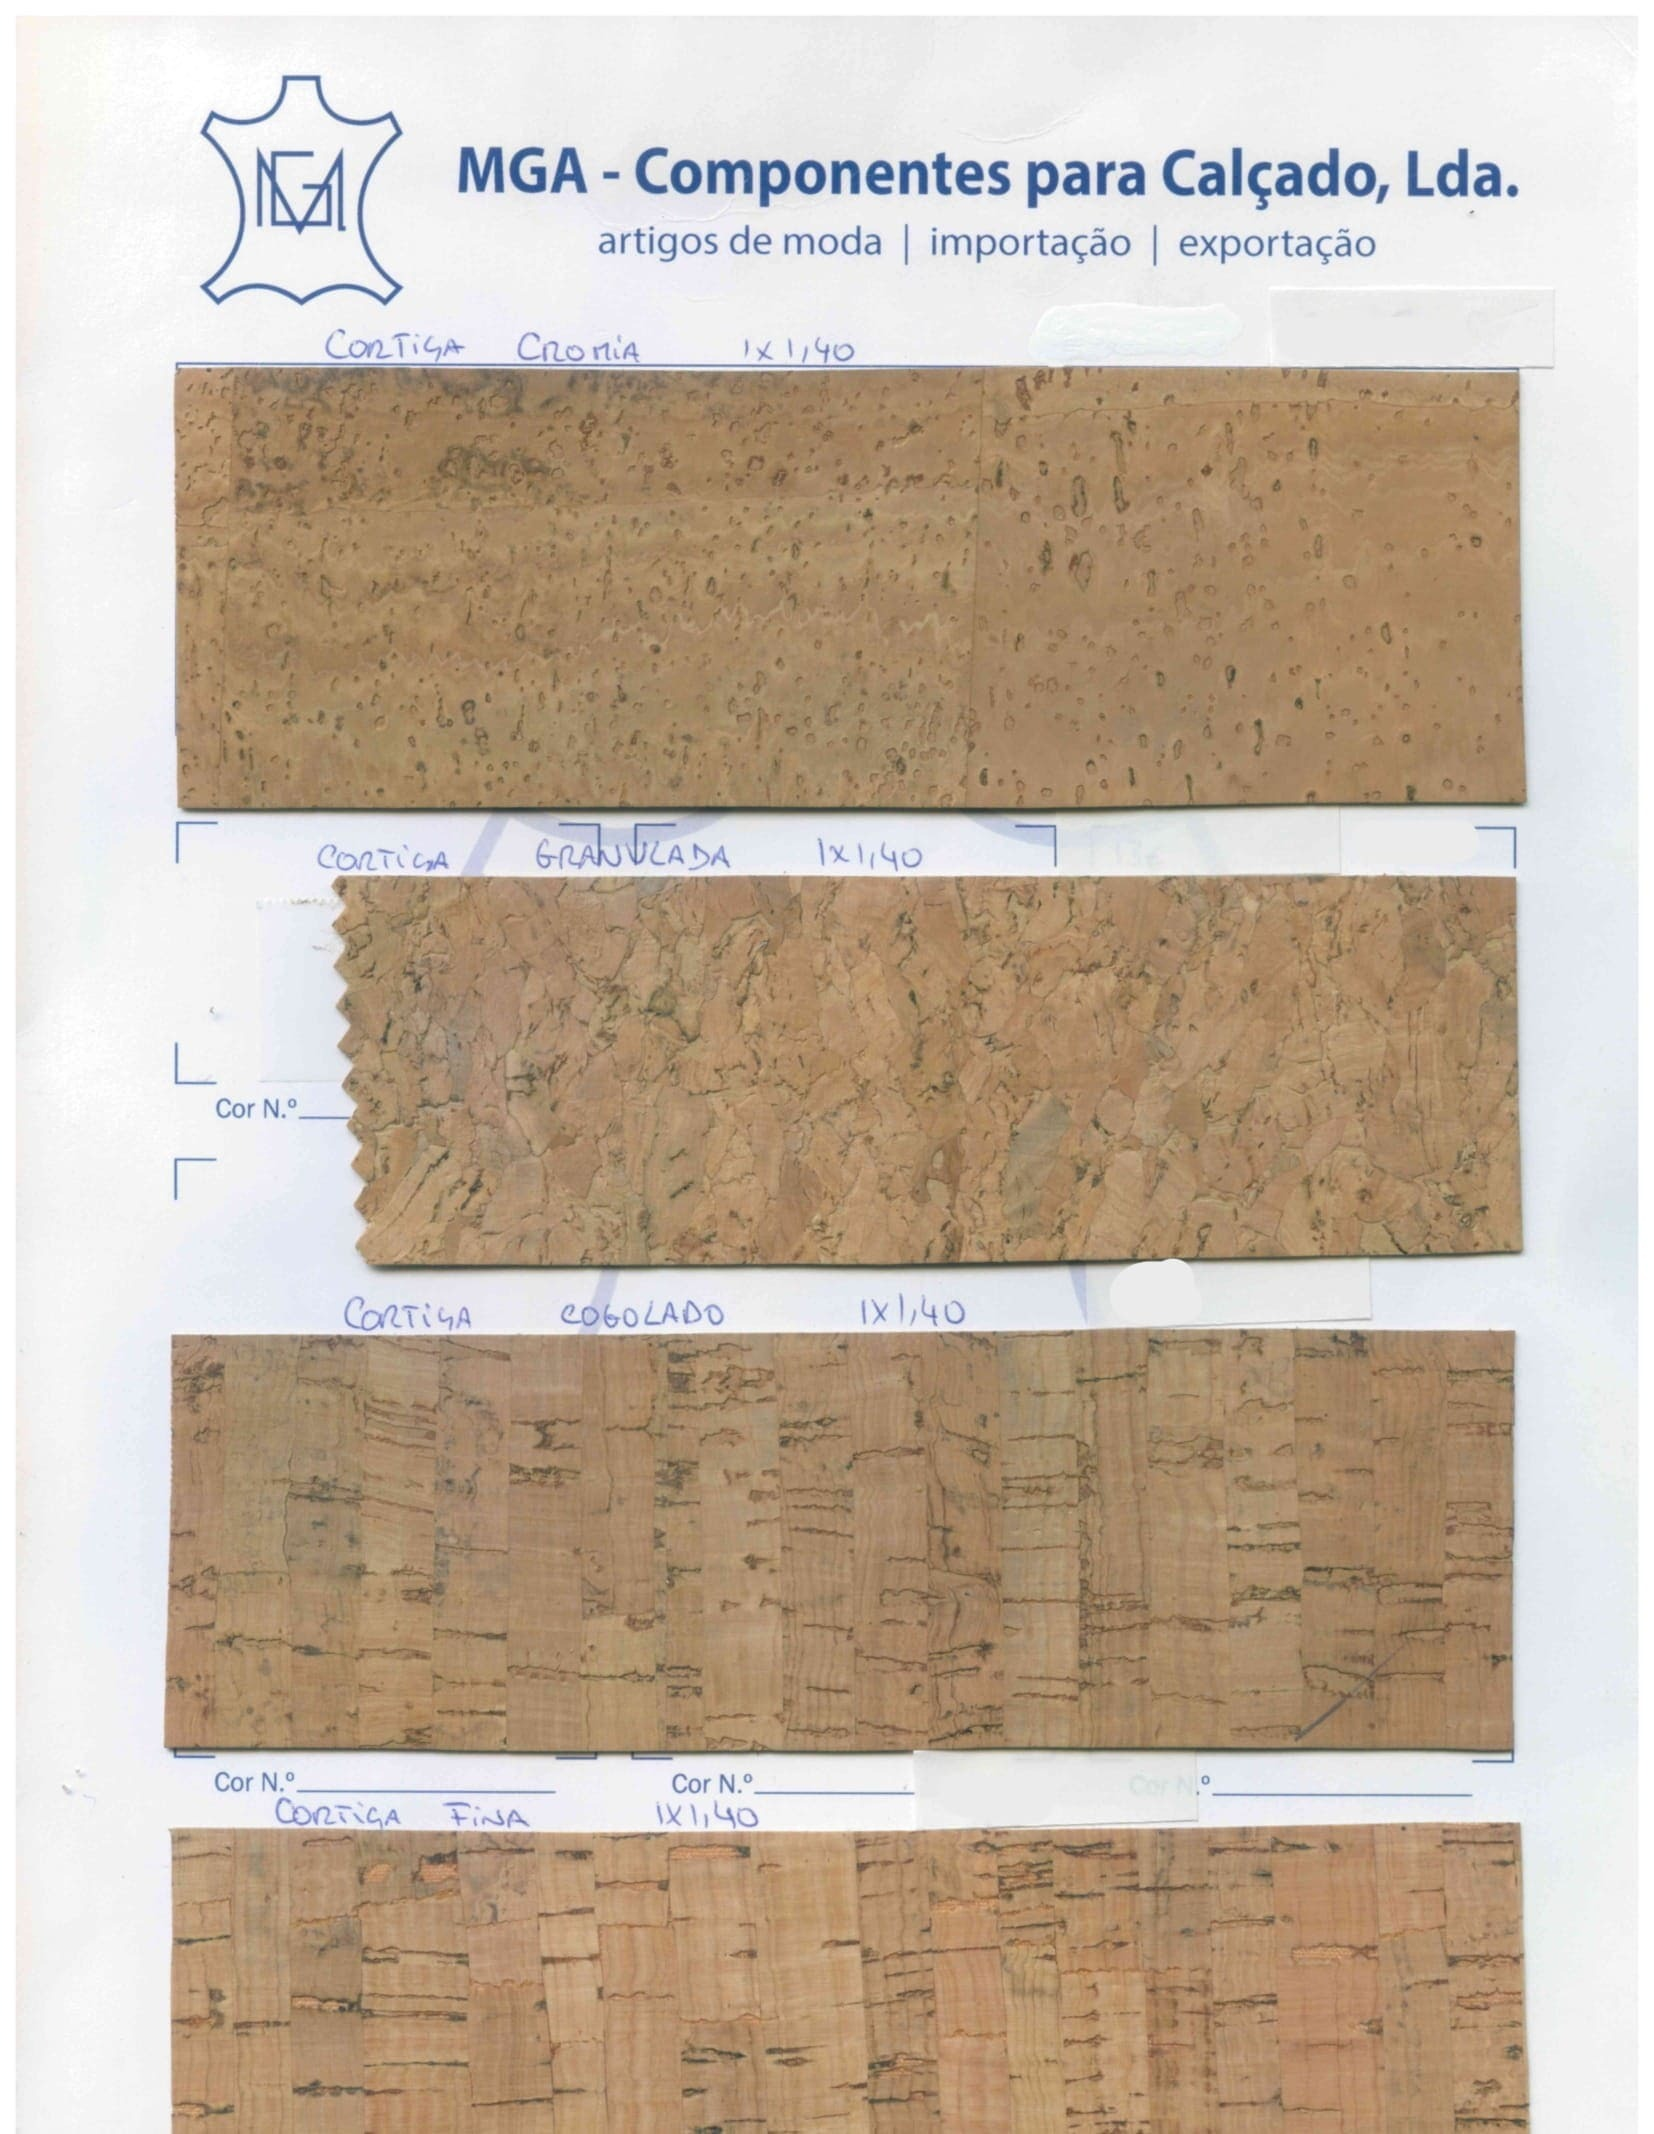 MGA
MGA - Componentes para Calçado, Lda.
artigos de moda | importação | exportação
CORTIÇA CROMIA 1X1,40
CORTIÇA GRANULADA 1X1,40
Cor N.º
CORTIÇA COGOLADO 1X1,40
Cor N.º Cor N.º Cor N.º
CORTIÇA FINA 1X1,40